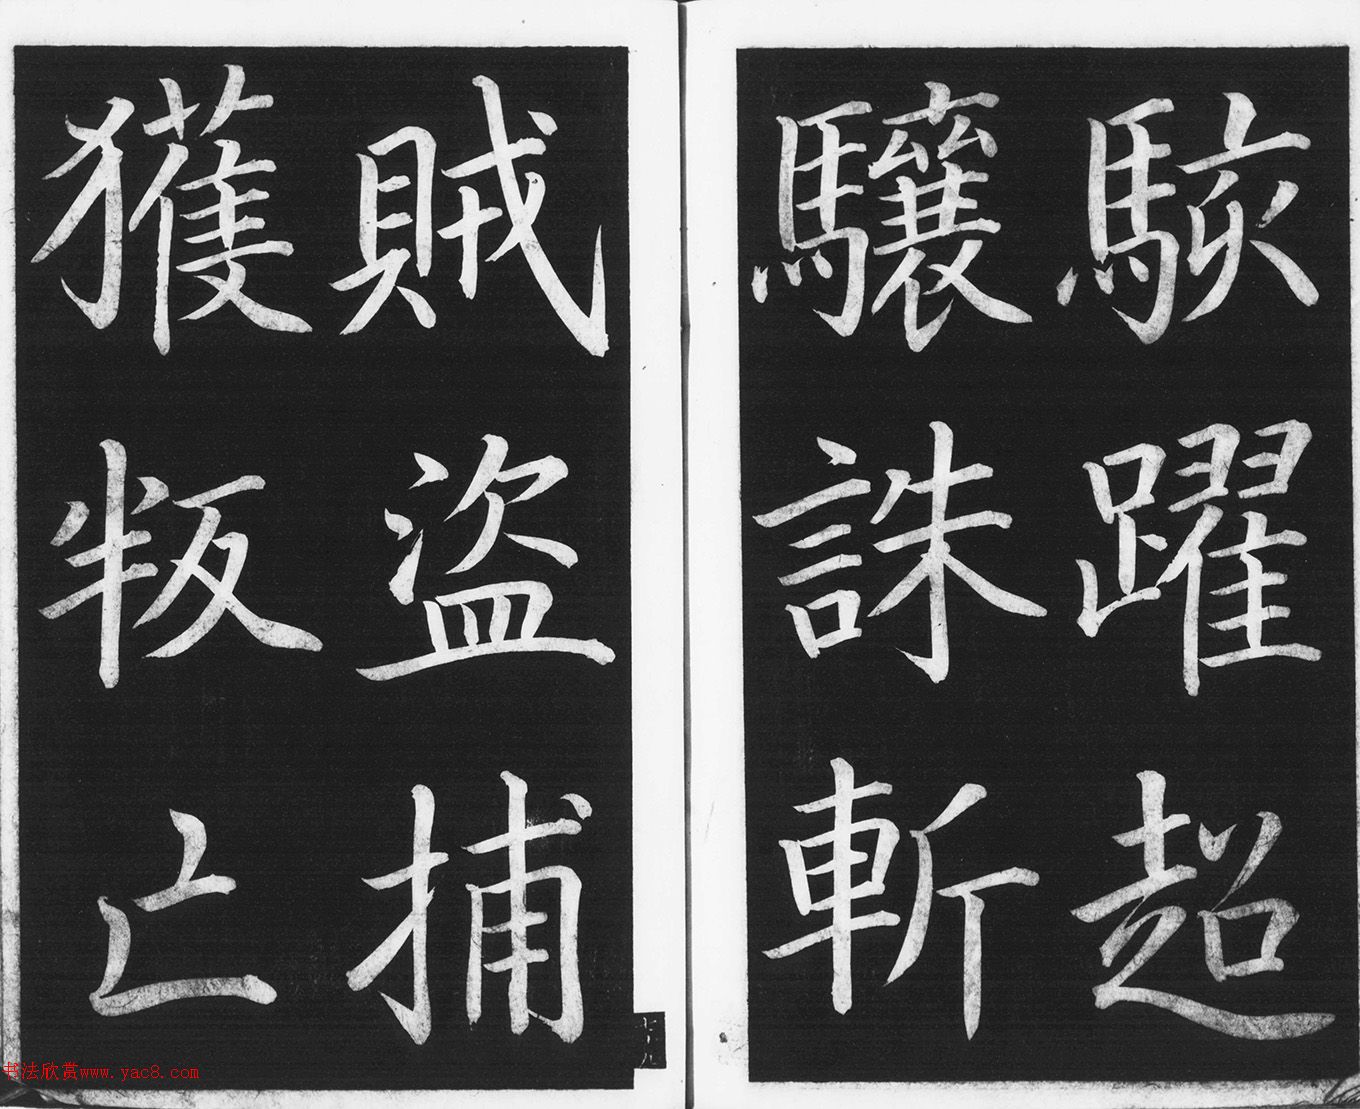 駭躍超
驤誅斬
賊盜捕
獲叛亡
十九
书法欣赏www.yac8.com